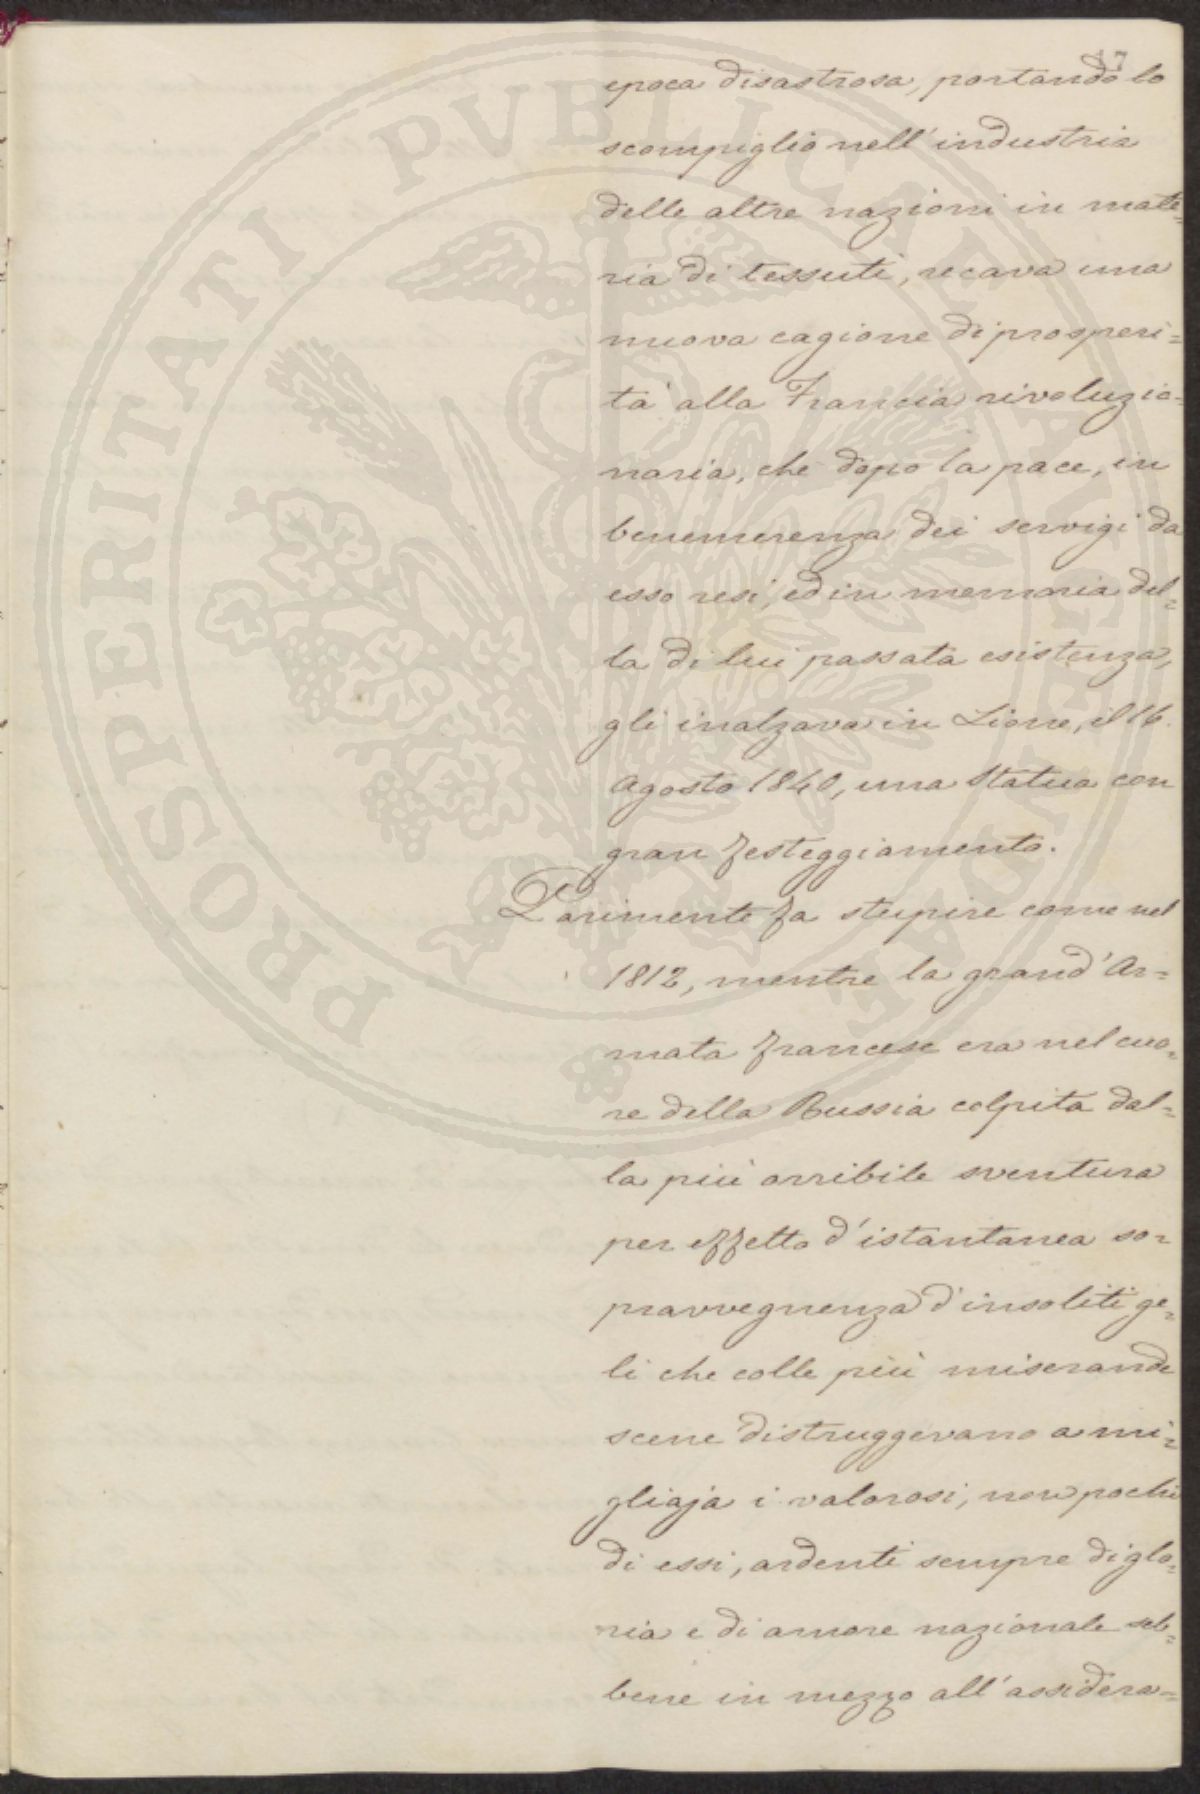 17
epoca disastrosa, portando lo
scompiglio nell'industria
delle altre nazioni in mate=
ria di tessuti, recava una
nuova cagione di prosperi=
tà alla Francia rivoluzio=
naria, che dopo la pace, in
benemerenza dei servigi da
esso resi, ed in memoria del=
la di lui passata esistenza,
gli inalzava in Lione, il 16.
Agosto 1840, una Statua con
gran festeggiamento.
Parimente fa stupire come nel
1812, mentre la grand'Ar=
mata francese era nel cuo=
re della Russia colpita dal=
la più orribile sventura
per effetto d'istantanea so=
pravvegnenza d'insoliti ge=
li che colle più miserande
scene distruggevano a mi=
gliaja i valorosi, non pochi
di essi, ardenti sempre di glo=
ria e di amore nazionale seb=
bene in mezzo all'assidera=
PROSPERITATI PVBLICAE AVGENDAE